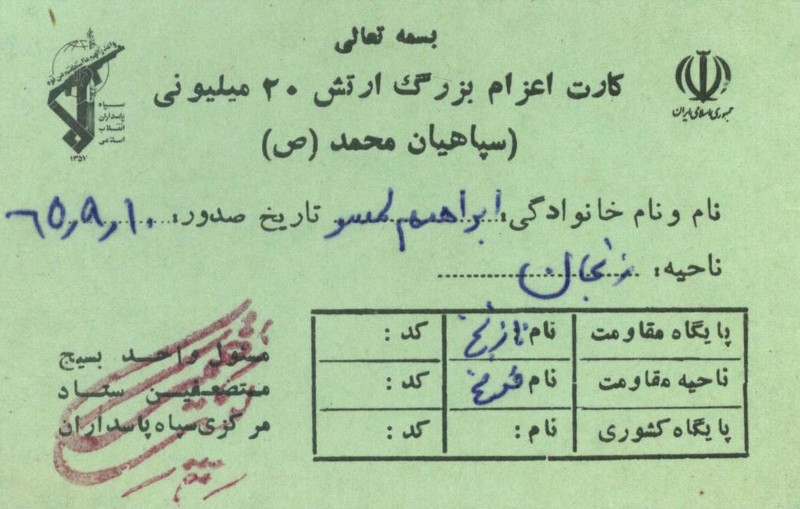 بسمه تعالی
کارت اعزام بزرگ ارتش ۲۰ میلیونی
(سپاهیان محمد (ص)
جمهوری اسلامی ایران
سپاه
پاسداران
انقلاب
اسلامی
۱۳۵۷
نام و نام خانوادگی: ابراهیم تاریخ صدور: ۶۵٫۹٫۱۰
ناحیه: زنجان
پایگاه مقاومت نام کد :
ناحیه مقاومت نام کد :
پایگاه کشوری نام : کد :
مسئول واحد بسیج
مستضعفین ستاد
مرکزی سپاه پاسداران